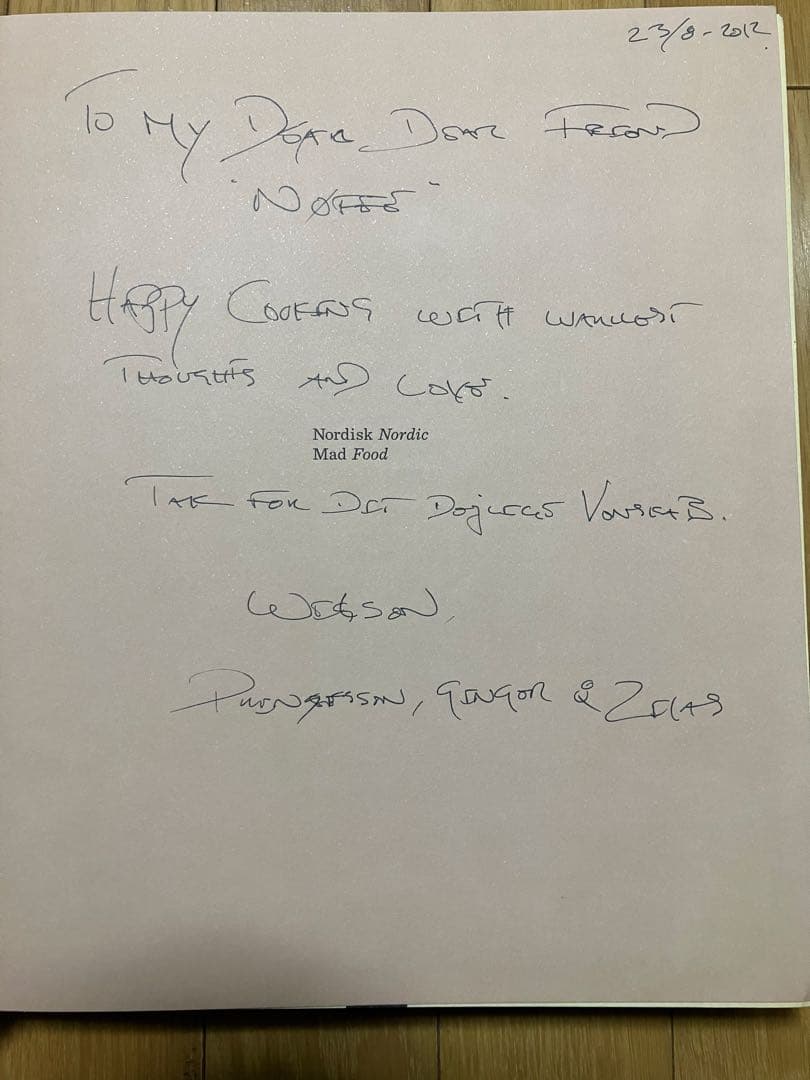 23/8-2012
TO MY DEAR, DEAR FRIEND
"NØFFE"
HAPPY COOKING WITH WARMEST
THOUGHTS AND LOVE.
Nordisk Nordic
Mad Food
TAK FOR DET DEJLIGE VENSKAB.
GINGER &